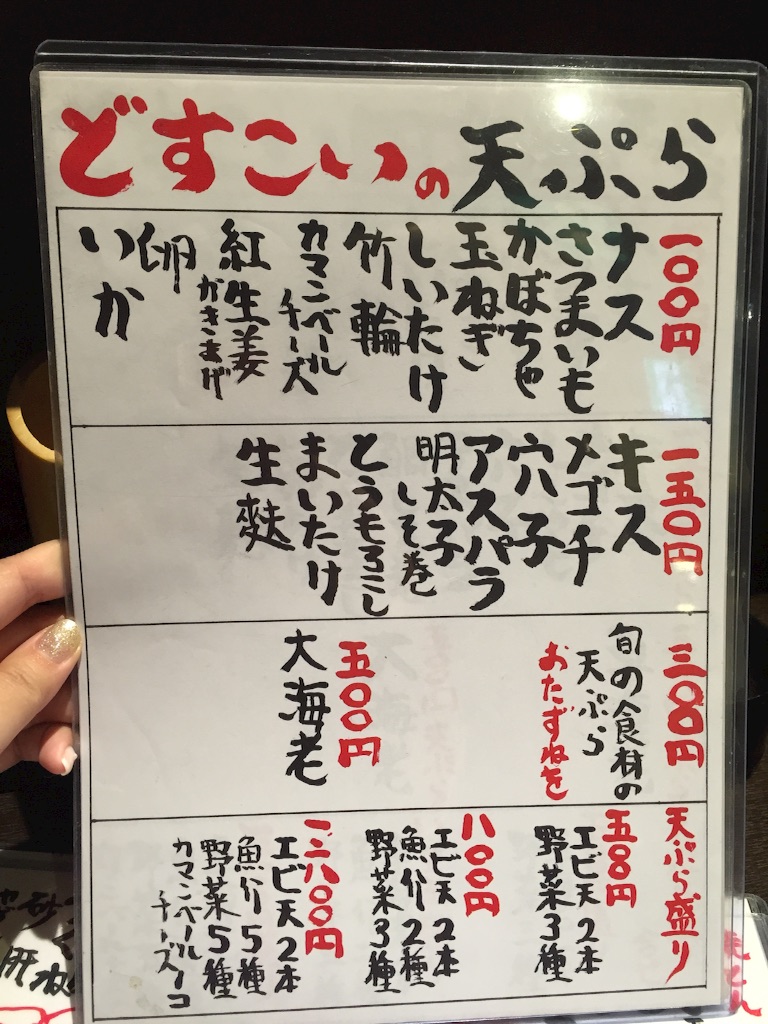 どすこいの天ぷら
一〇〇円
ナス
さつまいも
かぼちゃ
玉ねぎ
しいたけ
竹輪
カマンベール
チーズ
紅生姜
かきあげ
卵
いか
一五〇円
キス
メゴチ
穴子
アスパラ
明太子
しそ巻
とうもろこし
まいたけ
生麩
三〇〇円
旬の食材の
天ぷら
おたずねを
五〇〇円
大海老
天ぷら盛り
五八〇円
エビ天2本
野菜3種
八〇〇円
エビ天2本
魚介2種
野菜3種
一二八〇〇円
エビ天2本
魚介5種
野菜5種
カマンベール
チーズ1コ